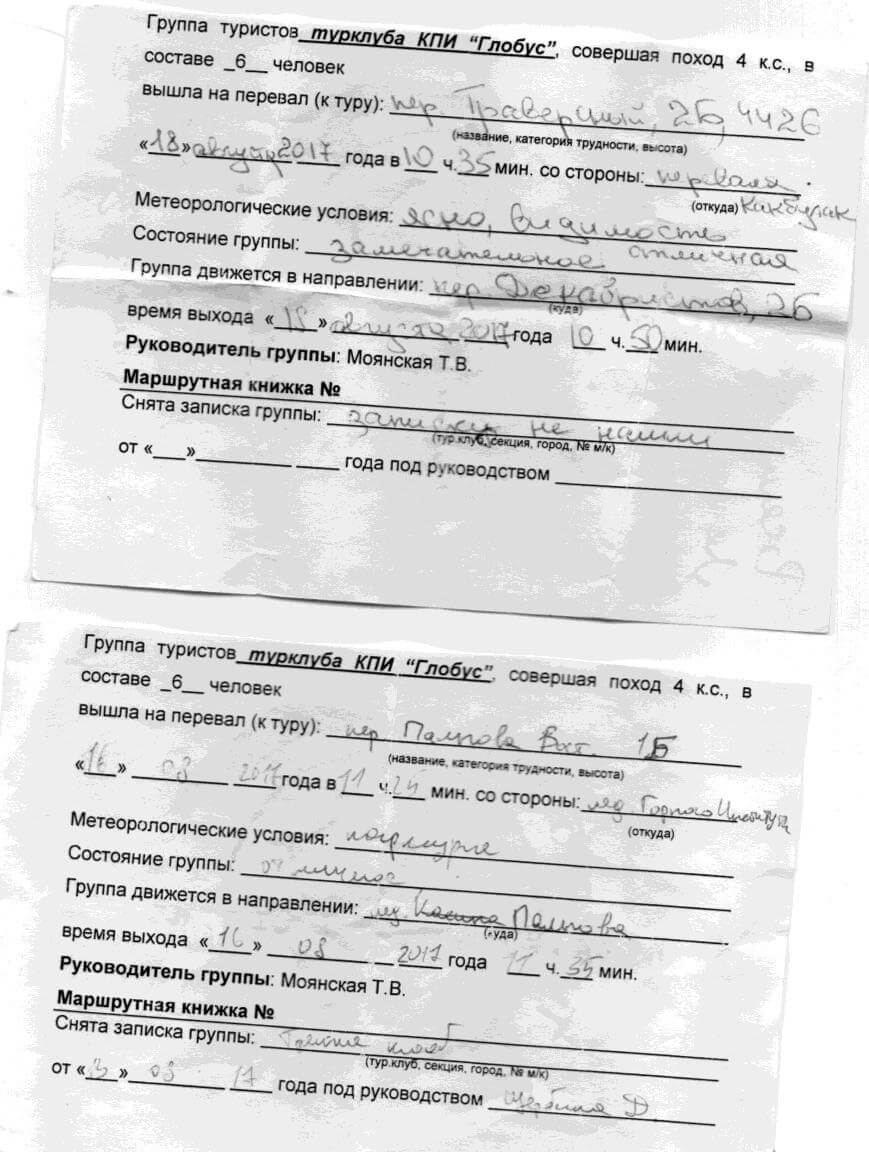 Группа туристов турклуба КПИ “Глобус”, совершая поход 4 к.с., в
составе _6__ человек
вышла на перевал (к туру): пер. Траверсный, 2Б, 4426
(название, категория трудности, высота)
«18» августа 2017 года в 10 ч. 35 мин. со стороны: перевала
(откуда) Какбулак
Метеорологические условия: ясно, видимость
отличная
Состояние группы: замечательное
Группа движется в направлении: пер Декабристов, 2Б
(куда)
время выхода «18» августа 2017 года 10 ч. 50 мин.
Руководитель группы: Моянская Т.В.
Маршрутная книжка №
Снята записка группы: записки не нашли
(тур.клуб, секция, город, № м/к)
от «___»_________ ____ года под руководством
Группа туристов турклуба КПИ “Глобус”, совершая поход 4 к.с., в
составе _6__ человек
вышла на перевал (к туру): пер Палгова Вост. 1Б
(название, категория трудности, высота)
«16» 08 2017 года в 11 ч. 25 мин. со стороны: лед Горного Института
(откуда)
Метеорологические условия: пасмурно
Состояние группы: отличное
Группа движется в направлении: Палгова
(куда)
время выхода «16» 08 2017 года 11 ч. 35 мин.
Руководитель группы: Моянская Т.В.
Маршрутная книжка №
Снята записка группы:
(тур.клуб, секция, город, № м/к)
от «3» 08 17 года под руководством Щербина Д